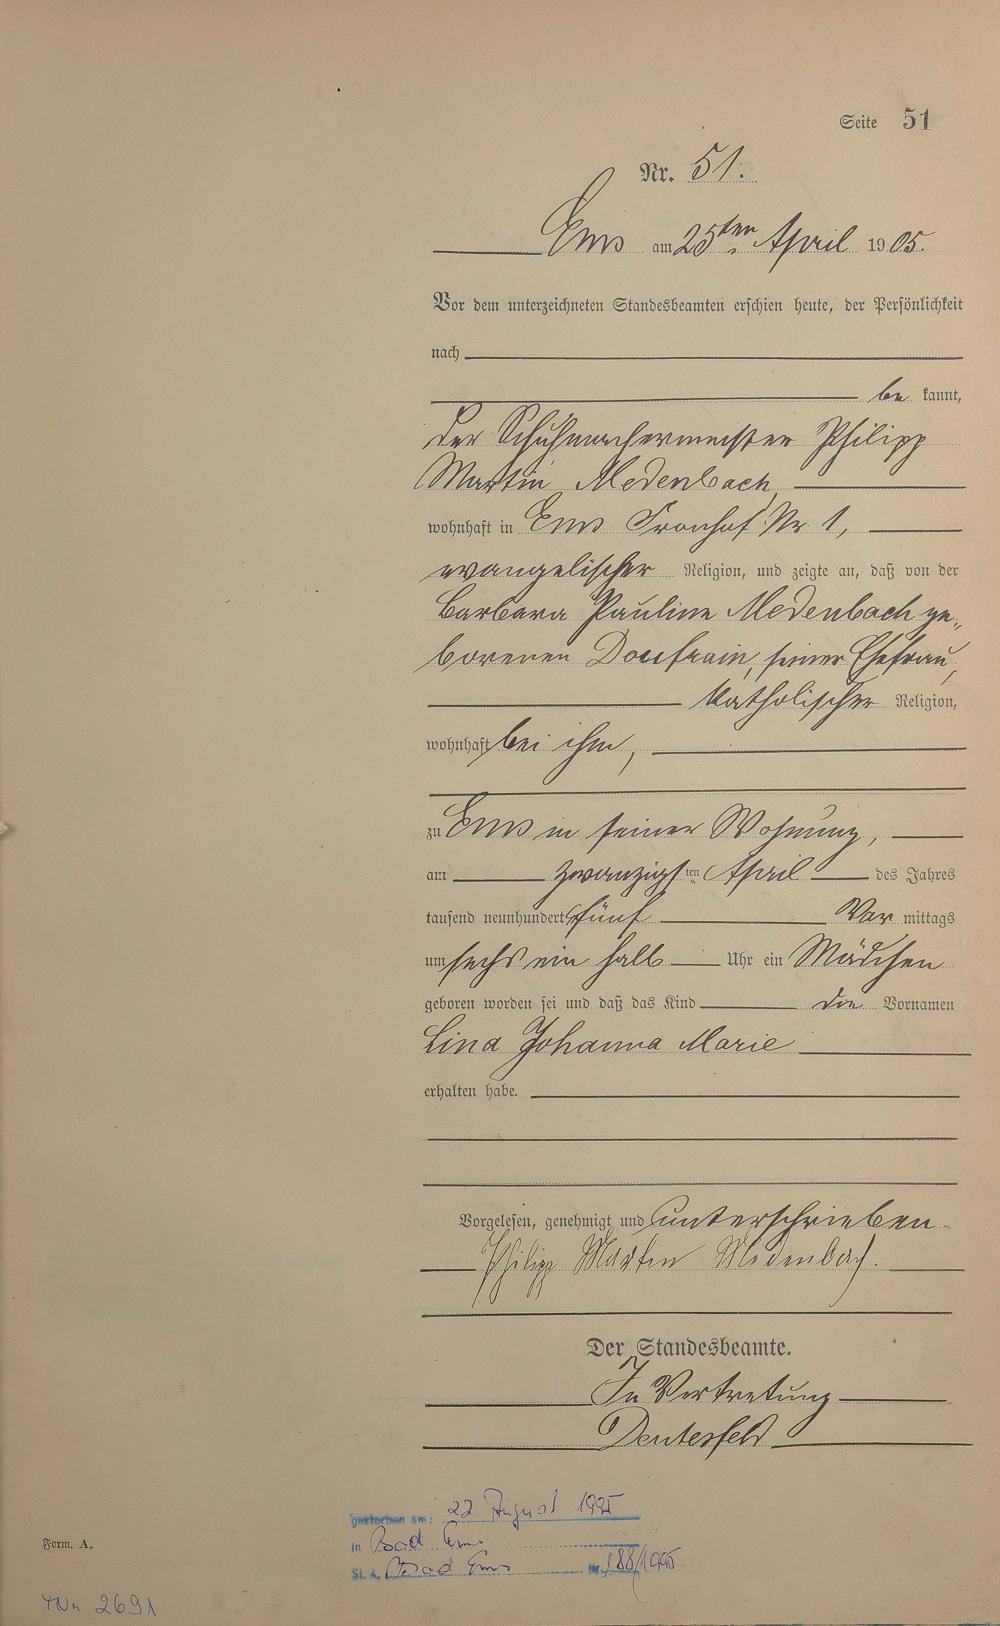 Seite 51
Nr. 51.
Ems am 25ten April 1905.
Vor dem unterzeichneten Standesbeamten erschien heute, der Persönlichkeit
nach
be kannt,
der Schuhmachermeister Philipp
Martin Medenbach,
wohnhaft in Ems Fronhof Nr 1,
evangelischer Religion, und zeigte an, daß von der
Barbara Pauline Medenbach ge„
borenen Doufrain, seiner Ehefrau,
katholischer Religion,
wohnhaft bei ihm,
zu Ems in seiner Wohnung,
am zwanzigsten April des Jahres
tausend neunhundert fünf Vor mittags
um sechs ein halb Uhr ein Mädchen
geboren worden sei und daß das Kind die Vornamen
Lina Johanna Marie
erhalten habe.
Vorgelesen, genehmigt und unterschrieben
Philipp Martin Medenbach.
Der Standesbeamte.
In Vertretung
gestorben am: 22 August 1995
in Bad Ems
Form. A.
St. A. Bad Ems Nr. 188/1995
2691